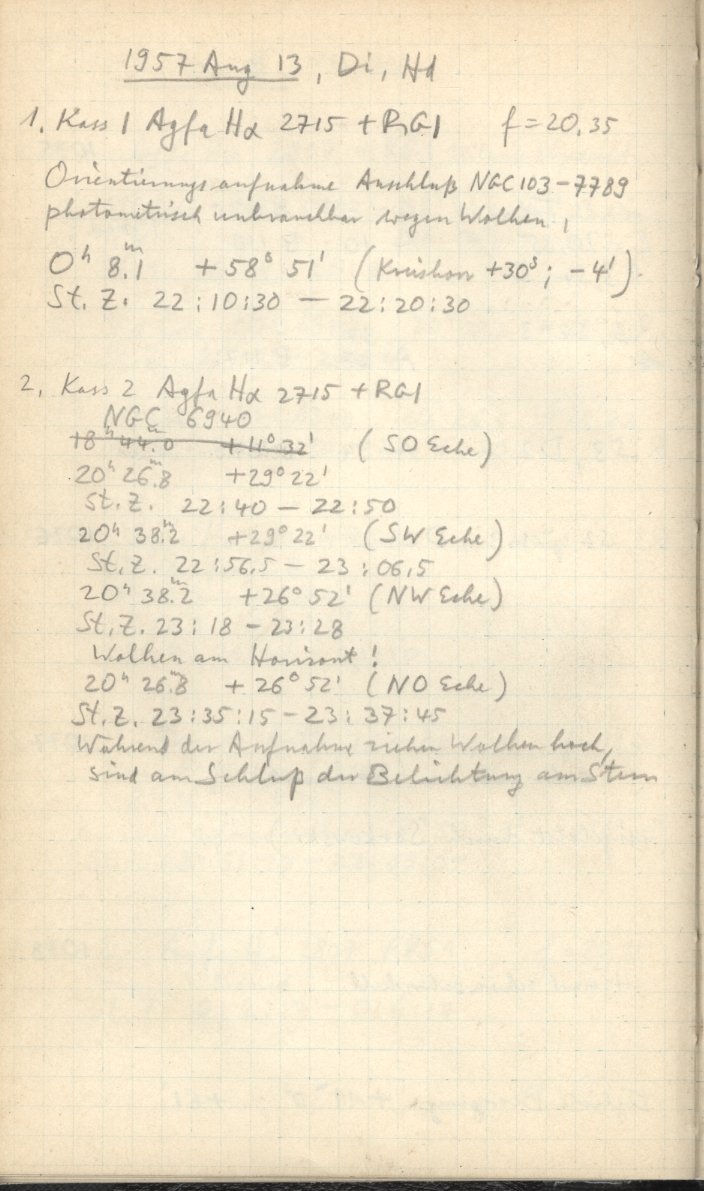 1957 Aug 13, Di, Hd
1. Kass 1 Agfa Hα 2715 + RG1 f = 20,35
Orientierungsaufnahme Anschluß NGC 103 - 7789
photometrisch unbrauchbar wegen Wolken,
0ʰ 8.ᵐ1 +58° 51' (+30ˢ; -4').
St. Z. 22:10:30 — 22:20:30
2. Kass 2 Agfa Hα 2715 + RG1
NGC 6940
18ʰ 44.ᵐ0 +11° 32' (SO Ecke)
20ʰ 26.ᵐ8 +29° 22'
St. Z. 22:40 — 22:50
20ʰ 38.ᵐ2 +29° 22' (SW Ecke)
St. Z. 22:56,5 — 23:06,5
20ʰ 38.ᵐ2 +26° 52' (NW Ecke)
St. Z. 23:18 — 23:28
Wolken am Horizont!
20ʰ 26.ᵐ8 +26° 52' (NO Ecke)
St. Z. 23:35:15 - 23:37:45
Während der Aufnahme ziehen Wolken hoch,
sind am Schluß der Belichtung am Stern